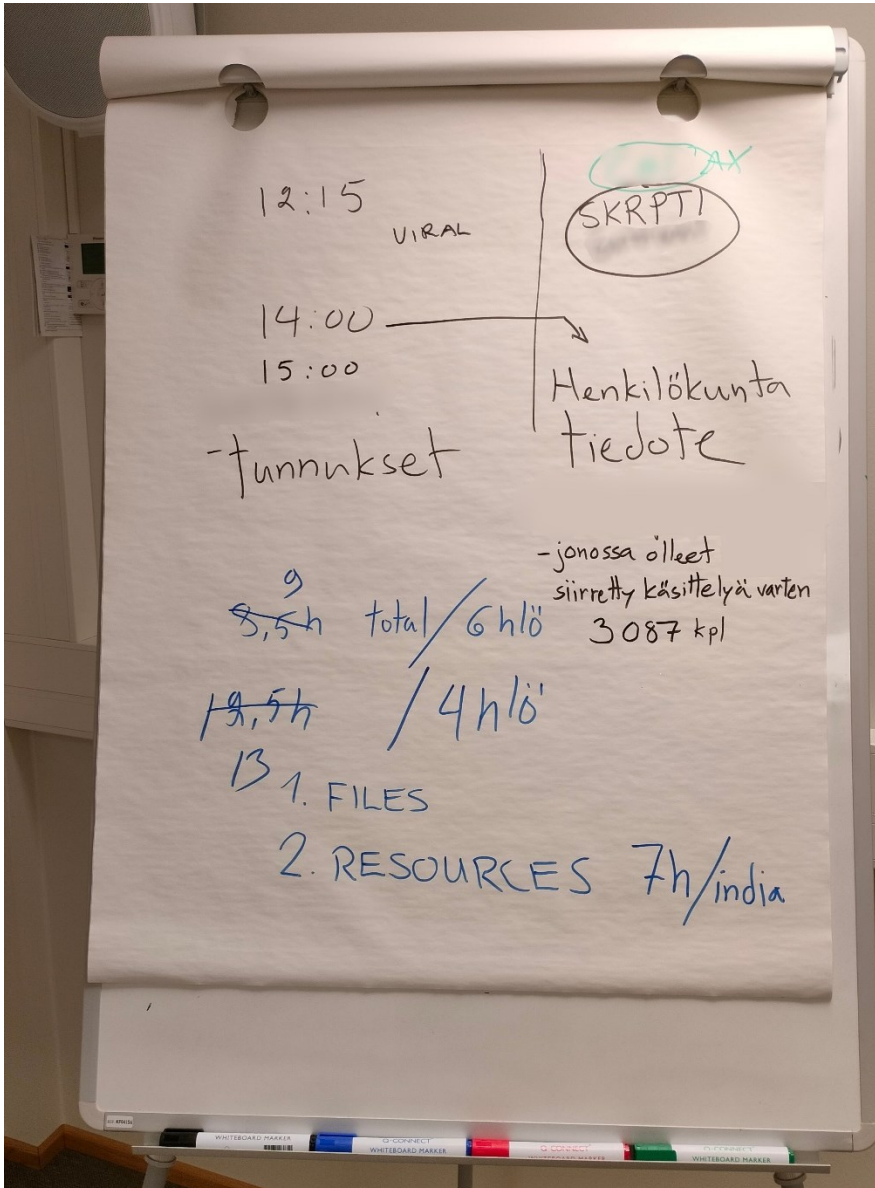 12:15
VIRAL
14:00
15:00
-tunnukset
AX
SKRIPTI
Henkilökunta
tiedote
-jonossa olleet
siirretty käsittelyä varten
3087 kpl
9
8,5h total/6 hlö
12,5h /4 hlö
13
1. FILES
2. RESOURCES 7h/india
WHITEBOARD MARKER
Q-CONNECT
WHITEBOARD MARKER
Q-CONNECT
WHITEBOARD MARKER
Q-CONNECT
WHITEBOARD MARKER